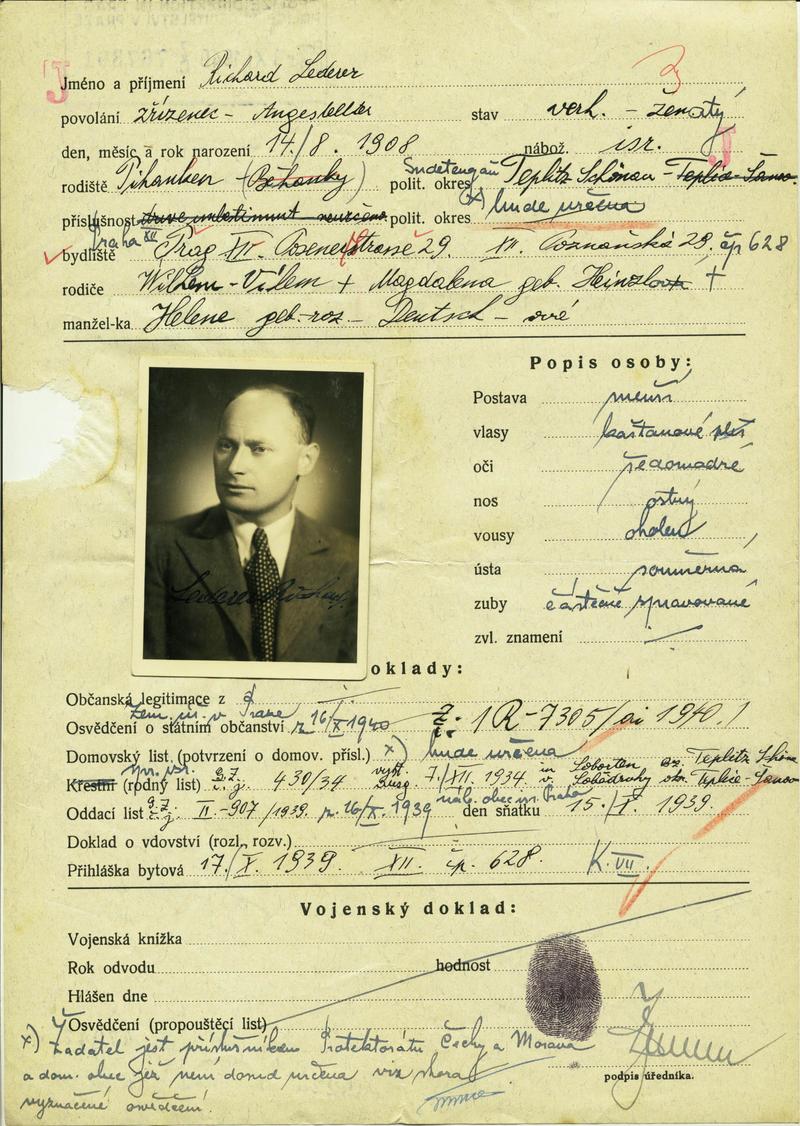 J
3
Jméno a příjmení Richard Lederer
povolání zřízenec - Angestellter stav verh. - ženatý
den, měsíc a rok narození 14./8. 1908 nábož. isr.
J
rodiště Pihanken (Běhánky) polit. okres Sudetengau Teplitz Schönau - Teplice-Šanov
příslušnost polit. okres x) bude určena
Praha XII
bydliště Prag XII. Posenerstrasse 29. XII. Poznaňská 29. čp 628
rodiče Wilhem - Vilem + Magdalena geb. Heinzlova +
manžel-ka Helene geb.-roz. - Deutsch - ové
Popis osoby:
Postava menší
vlasy kaštanové
oči šedomodré
nos ostrý
vousy oholen
ústa souměrná
zuby částečně spravované
zvl. znamení
Lederer Richard
oklady:
Občanská legitimace z
Zem. úř. v Praze
Osvědčení o státním občanství z 16/X 1940 č. 1R-7305/ai 1940.
Domovský list (potvrzení o domov. přísl.) x) bude určena
Křestní (rodný list) 430/34 7./XII. 1934 in Teplitz Schön
v okr. Teplice-Šanov
Oddací list II-907/1939. z. 16/X. 1939 náb. obec Praha den sňatku 15./X. 1939.
Doklad o vdovství (rozl., rozv.)
Přihláška bytová 17./X. 1939. XII. čp. 628. K. VII.
Vojenský doklad:
Vojenská knížka
Rok odvodu hodnost
Hlášen dne
Osvědčení (propouštěcí list)
x) Žadatel jest příslušníkem Protektorátu Čechy a Morava
a dom. obec jež není dosud určena viz shora
vyznačené osvědčení.
podpis úředníka.